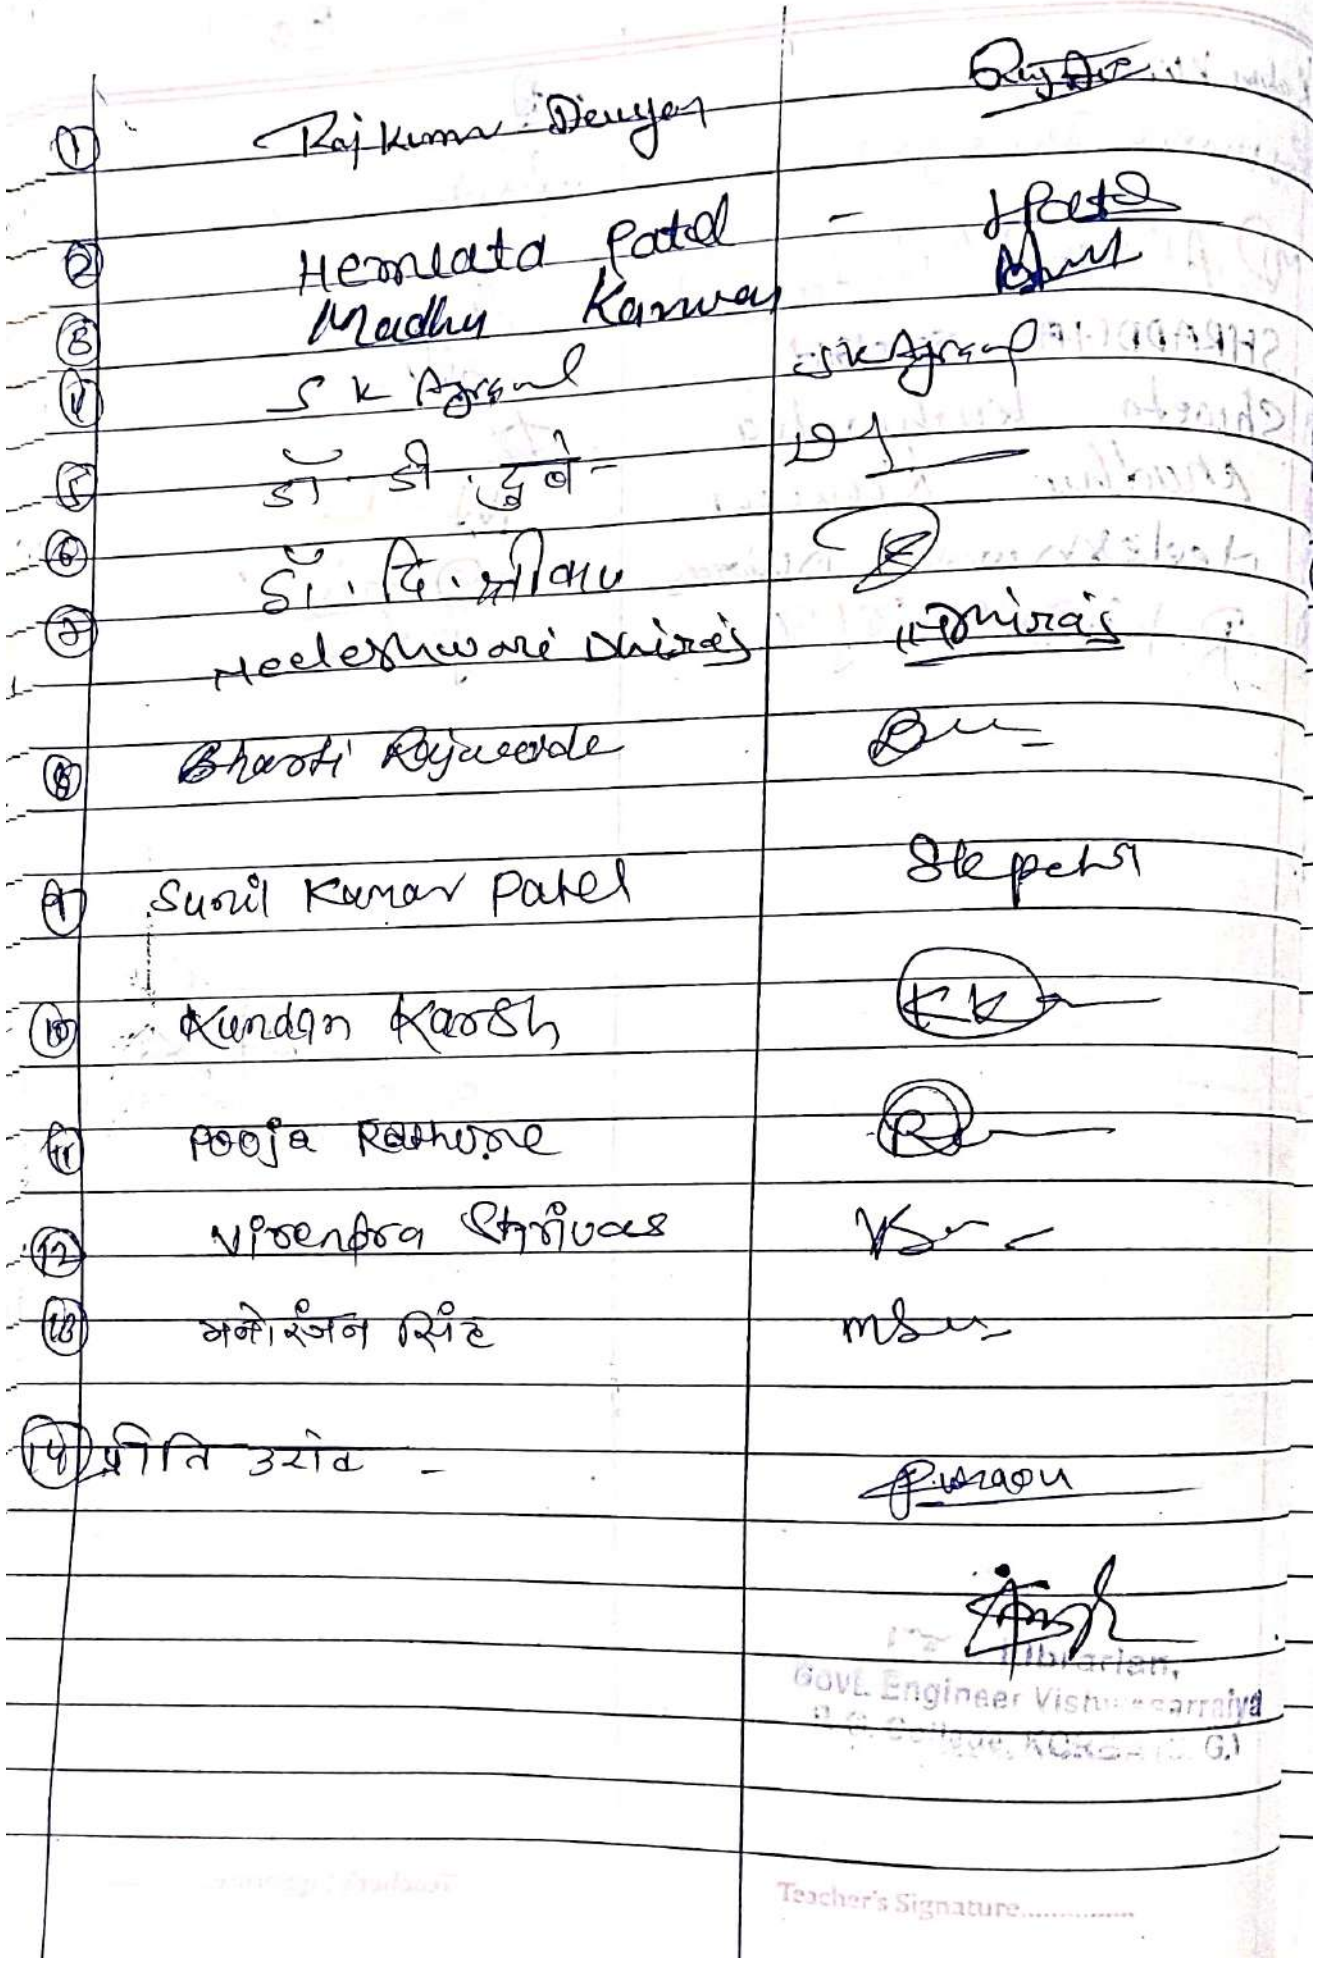 ① Raj Kumar Dewgan
② Hemlata Patel - HPatel
③ Madhu Kanwar
④ S K Agrawal SK Agrawal
⑤ डॉ. डी. दुबे -
⑥ डॉ. वि.
⑦ Neeleshwari Dhiraj Dhiraj
⑧ Bharti Rajwade
⑨ Sunil Kumar Patel Skpatel
⑩ Kundan Karsh KK
⑪ Pooja Rathore
⑫ Virendra Shrivas
⑬ मनोरंजन सिंह
⑭ प्रीति उरांव - P. uraon
Librarian,
Govt. Engineer Vishvesarraiya
P. G. College, KORBA (C. G.)
Teacher's Signature...............